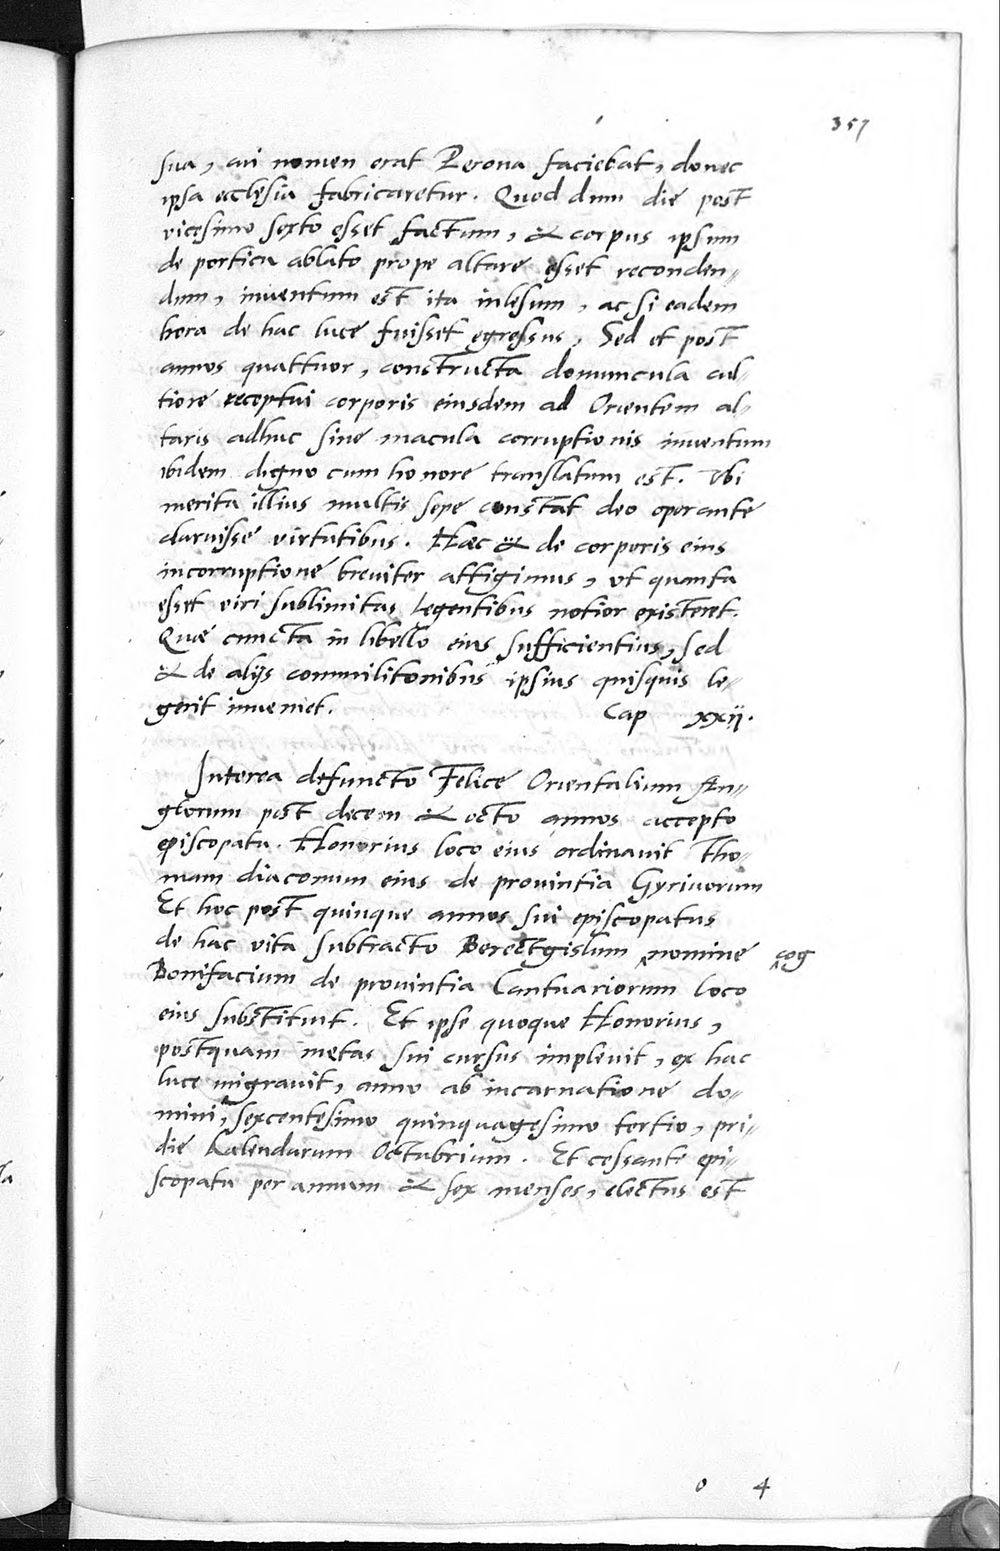 357
sua, cui nomen erat Perona faciebat, donec
ipsa ecclęsia fabricaretur. Quod dum die post
vicęsimo sexto esset factum, & corpus ipsum
de porticu ablato prope altare esset reconden„
dum, inventum est ita inlęsum, ac si eadem
hora de hac luce fuisset egressus, Sed et post
annos quattuor, constructa domuncula cul„
tiore receptui corporis eiusdem ad Orientem al„
taris adhuc sine macula corruptionis inventum
ibidem digno cum honore translatum est. Vbi
merita illius multis sępe constat deo operante
claruisse virtutibus. Hæc & de corporis eius
incorruptione breviter attigimus, vt quanta
esset viri sublimitas legentibus notior existeret.
Quæ cuncta in libello eius sufficientius, sed
& de alijs commilitonibus ipsius quisquis le„
gerit inveniet. Cap xxij.
Interea defuncto Felice Orientalium An„
glorum post decem & octo annos accepto
episcopatu. Honorius loco eius ordinavit Tho„
mam diaconum eius de provintia Gyrivorum
Et hoc post quinque annos sui episcopatus
de hac vita subtracto Berectgislum nomine cog
Bonifacium de provintia Cantuariorum loco
eius substituit. Et ipse quoque Honorius,
postquam metas sui cursus implevit, ex hac
luce migravit, anno ab incarnatione do„
mini, sexcentęsimo quinquagęsimo tertio, pri„
die Kalendarum Octubrium. Et cessante epi„
scopatu per annum & sex menses, electus est
o 4